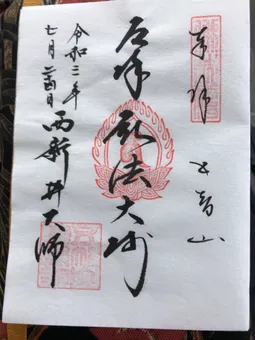 奉拝
五智山
厄除弘法大師
令和三年
七月
西新井大師